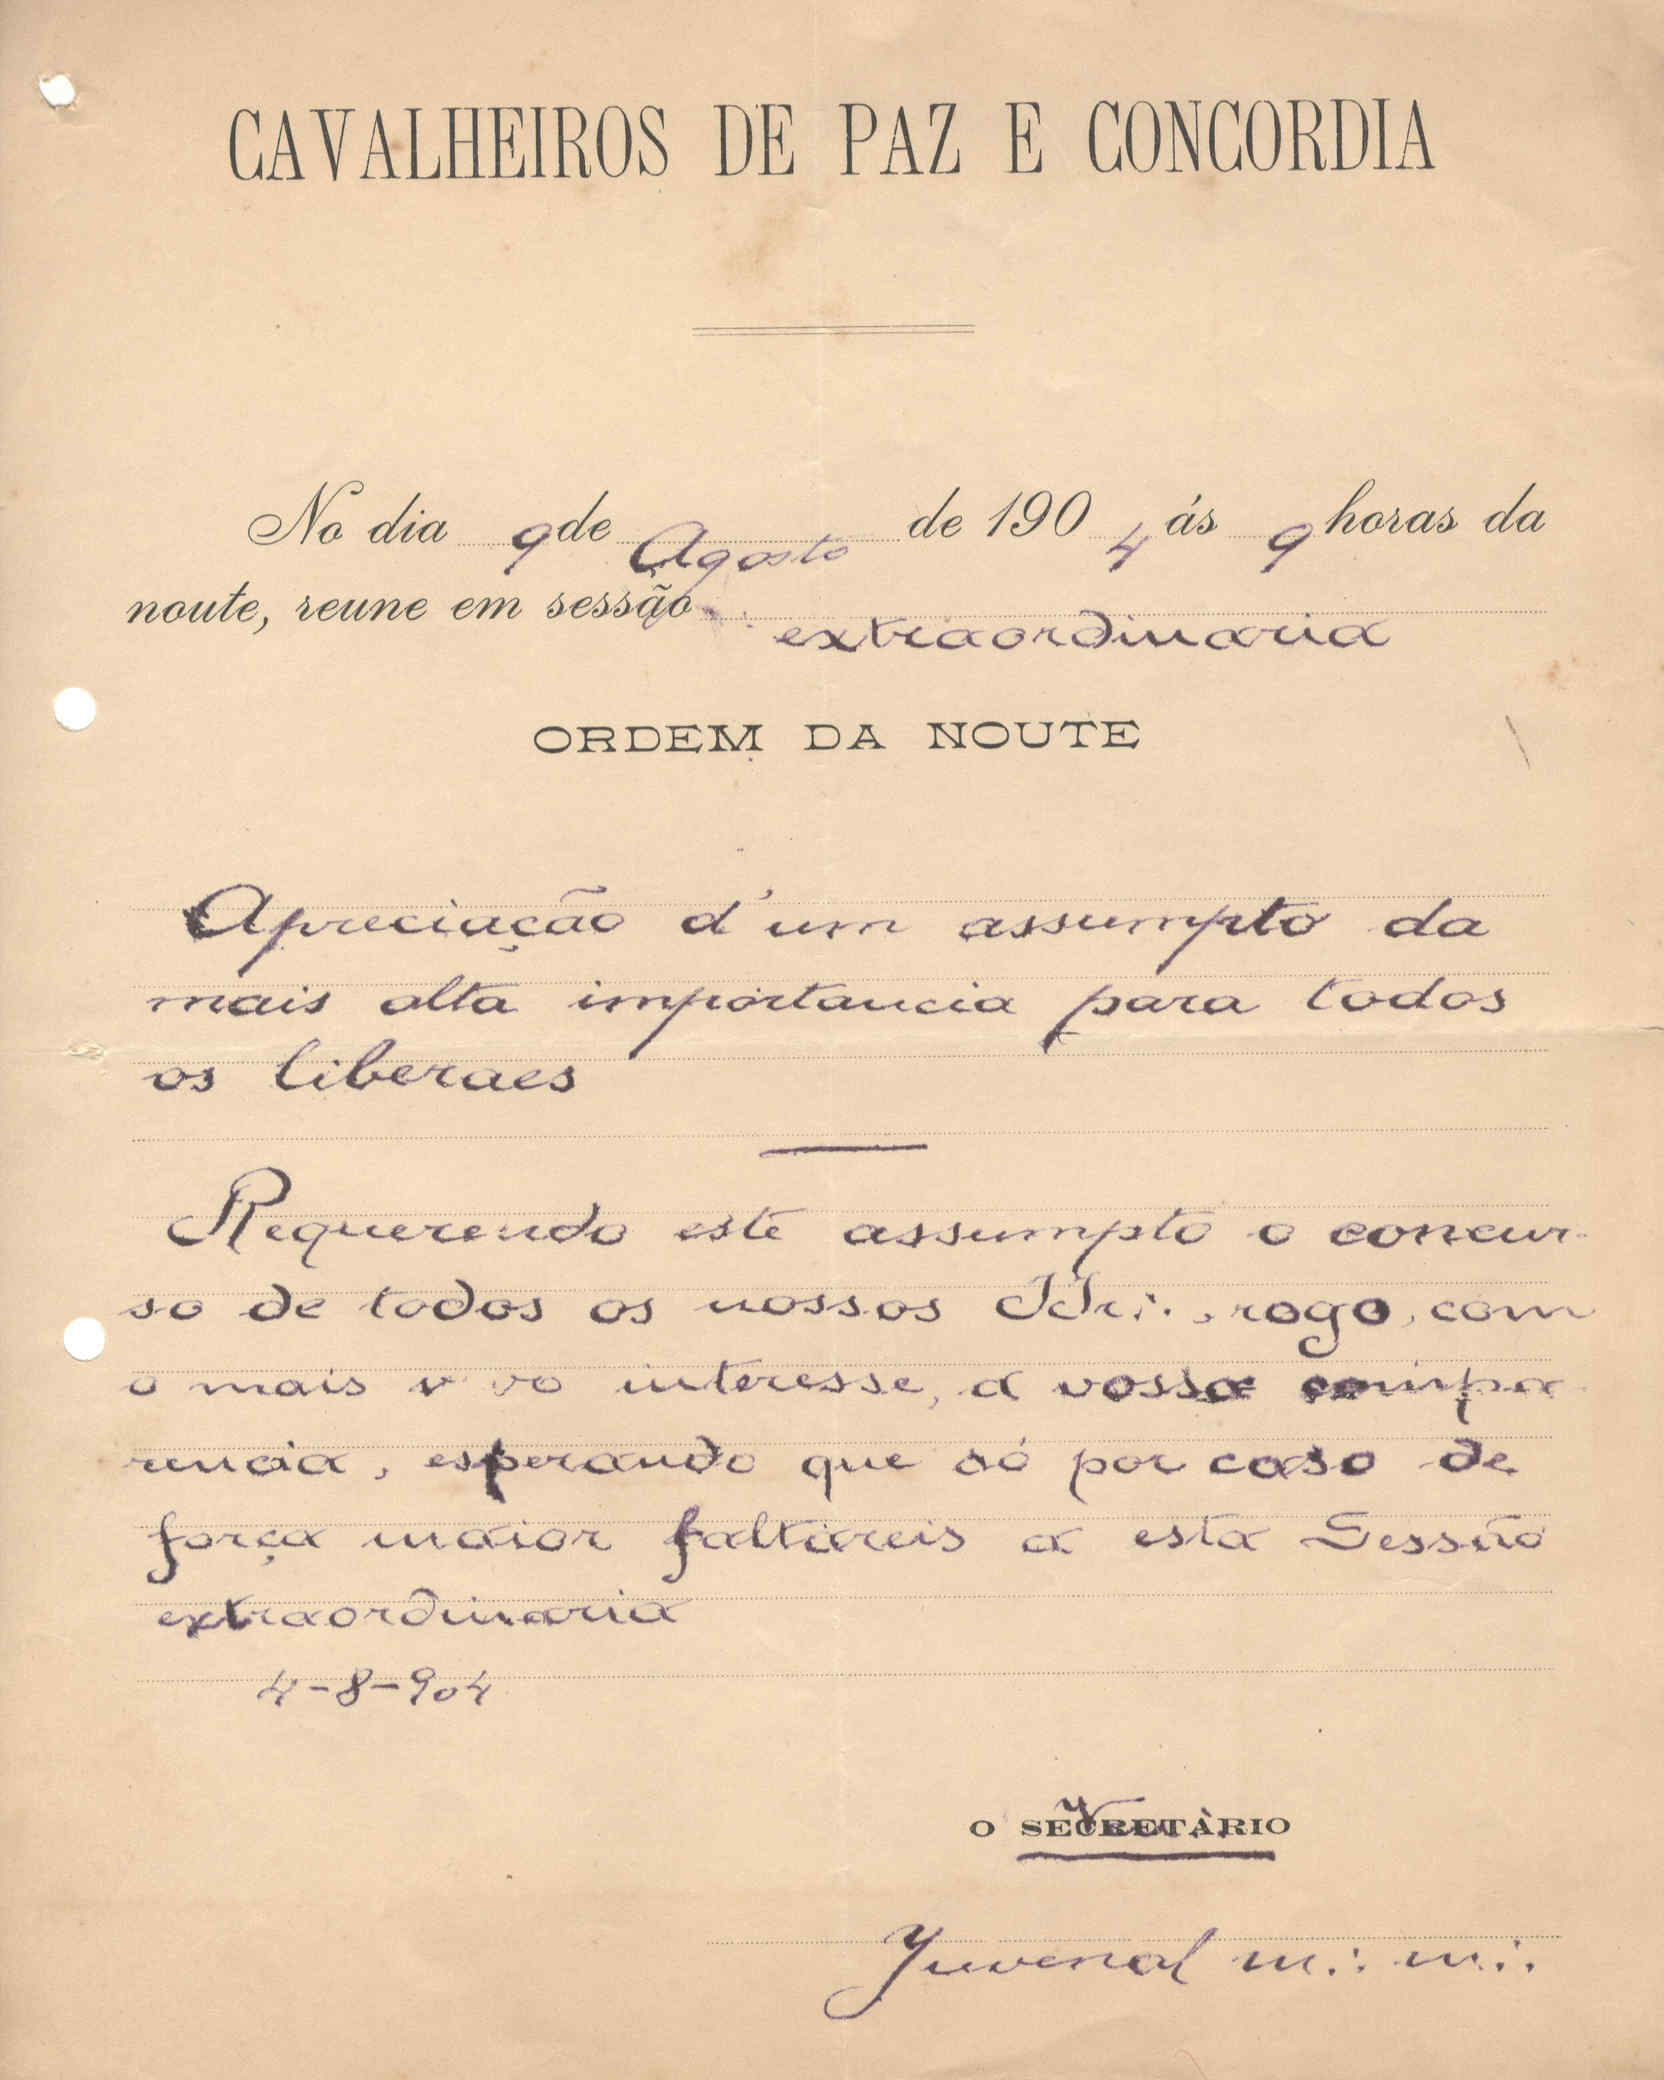 CAVALHEIROS DE PAZ E CONCORDIA
No dia 9 de Agosto de 1904 ás 9 horas da
noute, reune em sessão extraordinaria
ORDEM DA NOUTE
Apreciação d'um assumpto da
mais alta importancia para todos
os liberaes
Requerendo este assumpto o concur-
so de todos os nossos IIr∴, rogo, com
o mais vivo interesse, a vossa compa-
rencia, esperando que só por caso de
força maior faltareis a esta Sessão
extraordinaria
4-8-904
O SECRETÀRIO
Juvenal m∴ m∴